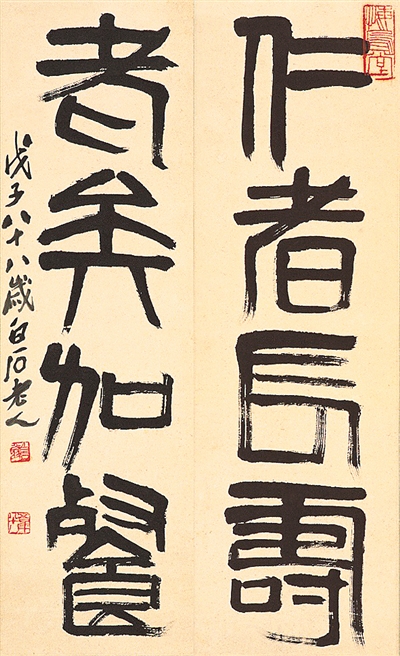 仁者長壽
老矣加餐
戊子八十八歲白石老人